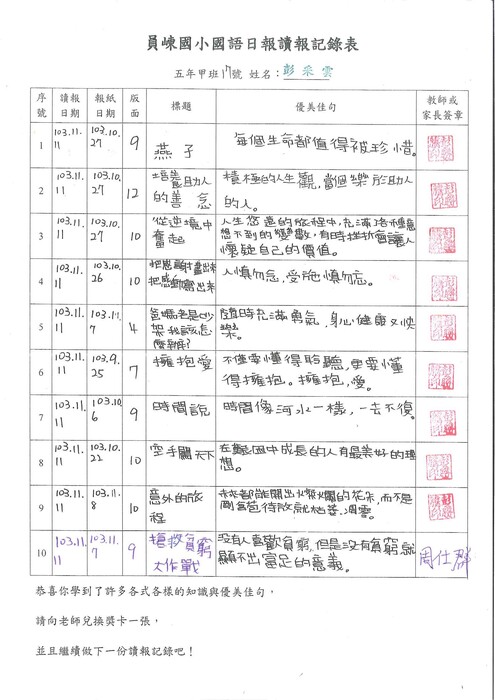 員崠國小國語日報讀報記錄表
五年甲班17號 姓名：彭采雲
序號 讀報日期 報紙日期 版面 標題 優美佳句 教師或家長簽章
1 103.11.11 103.10.27 9 燕子 每個生命都值得被珍惜。
2 103.11.11 103.10.27 12 培養助人的善念 積極的人生觀，當個樂於助人的人。
3 103.11.11 103.10.27 10 從逆境中奮起 人生悠遠的旅程中，充滿了各種意想不到的變數，有時挫折會讓人懷疑自己的價值。
4 103.11.11 103.10.26 10 把感謝畫出來把感動寫出來 人慎勿念，受施慎勿忘。
5 103.11.11 103.11.7 4 爸媽老是吵架我該怎麼辦？ 隨時充滿勇氣，身心健康又快樂。
6 103.11.11 103.9.25 7 擁抱愛 不僅要懂得聆聽，更要懂得擁抱。擁抱，愛。
7 103.11.11 103.10.6 9 時間說 時間像河水一樣，一去不復。
8 103.11.11 103.10.22 10 空手闖天下 在艱困中成長的人有最美好的理想。
9 103.11.11 103.11.8 10 意外的旅程 未來都能開出燦爛的花朵，而不是剛含苞待放就枯萎、凋零。
10 103.11.11 103.11.7 9 搶救貧窮大作戰 沒有人喜歡貧窮，但是沒有貧窮就顯不出富足的意義。 周仕
恭喜你學到了許多各式各樣的知識與優美佳句，
請向老師兌換獎卡一張，
並且繼續做下一份讀報記錄吧！